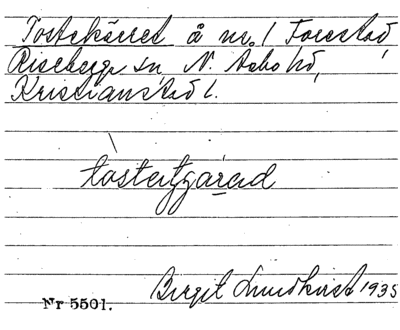 Tostekärret å nr. 1 Forestad,
Riseberga sn N. Åsbo hd,
Kristianstad l.
Birgit Lundkvist 1935
Nr 5501.